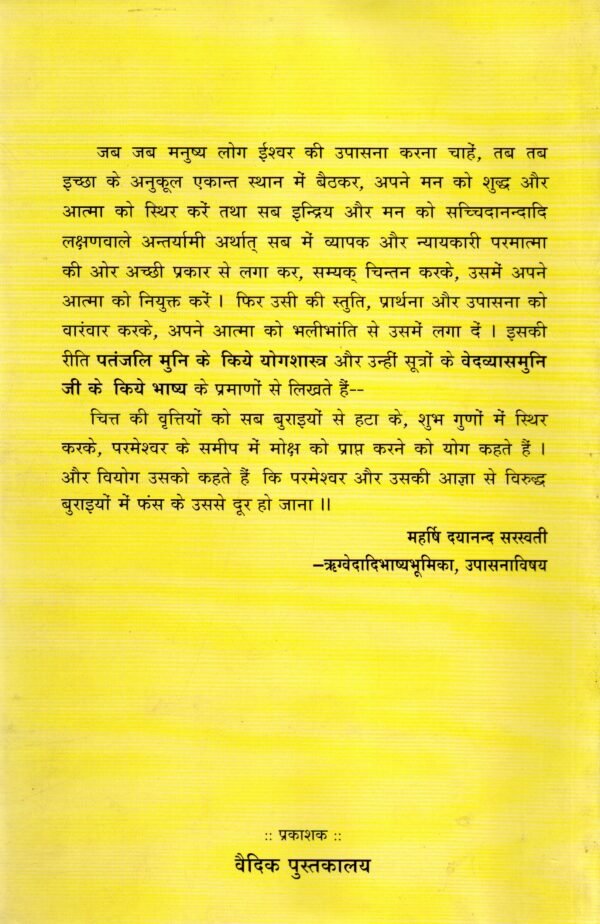 जब जब मनुष्य लोग ईश्वर की उपासना करना चाहें, तब तब
इच्छा के अनुकूल एकान्त स्थान में बैठकर, अपने मन को शुद्ध और
आत्मा को स्थिर करें तथा सब इन्द्रिय और मन को सच्चिदानन्दादि
लक्षणवाले अन्तर्यामी अर्थात् सब में व्यापक और न्यायकारी परमात्मा
की ओर अच्छी प्रकार से लगा कर, सम्यक् चिन्तन करके, उसमें अपने
आत्मा को नियुक्त करें । फिर उसी की स्तुति, प्रार्थना और उपासना को
वारंवार करके, अपने आत्मा को भलीभांति से उसमें लगा दें । इसकी
रीति पतंजलि मुनि के किये योगशास्त्र और उन्हीं सूत्रों के वेदव्यासमुनि
जी के किये भाष्य के प्रमाणों से लिखते हैं--
चित्त की वृत्तियों को सब बुराइयों से हटा के, शुभ गुणों में स्थिर
करके, परमेश्वर के समीप में मोक्ष को प्राप्त करने को योग कहते हैं ।
और वियोग उसको कहते हैं कि परमेश्वर और उसकी आज्ञा से विरुद्ध
बुराइयों में फंस के उससे दूर हो जाना ।।
महर्षि दयानन्द सरस्वती
–ऋग्वेदादिभाष्यभूमिका, उपासनाविषय
:: प्रकाशक ::
वैदिक पुस्तकालय